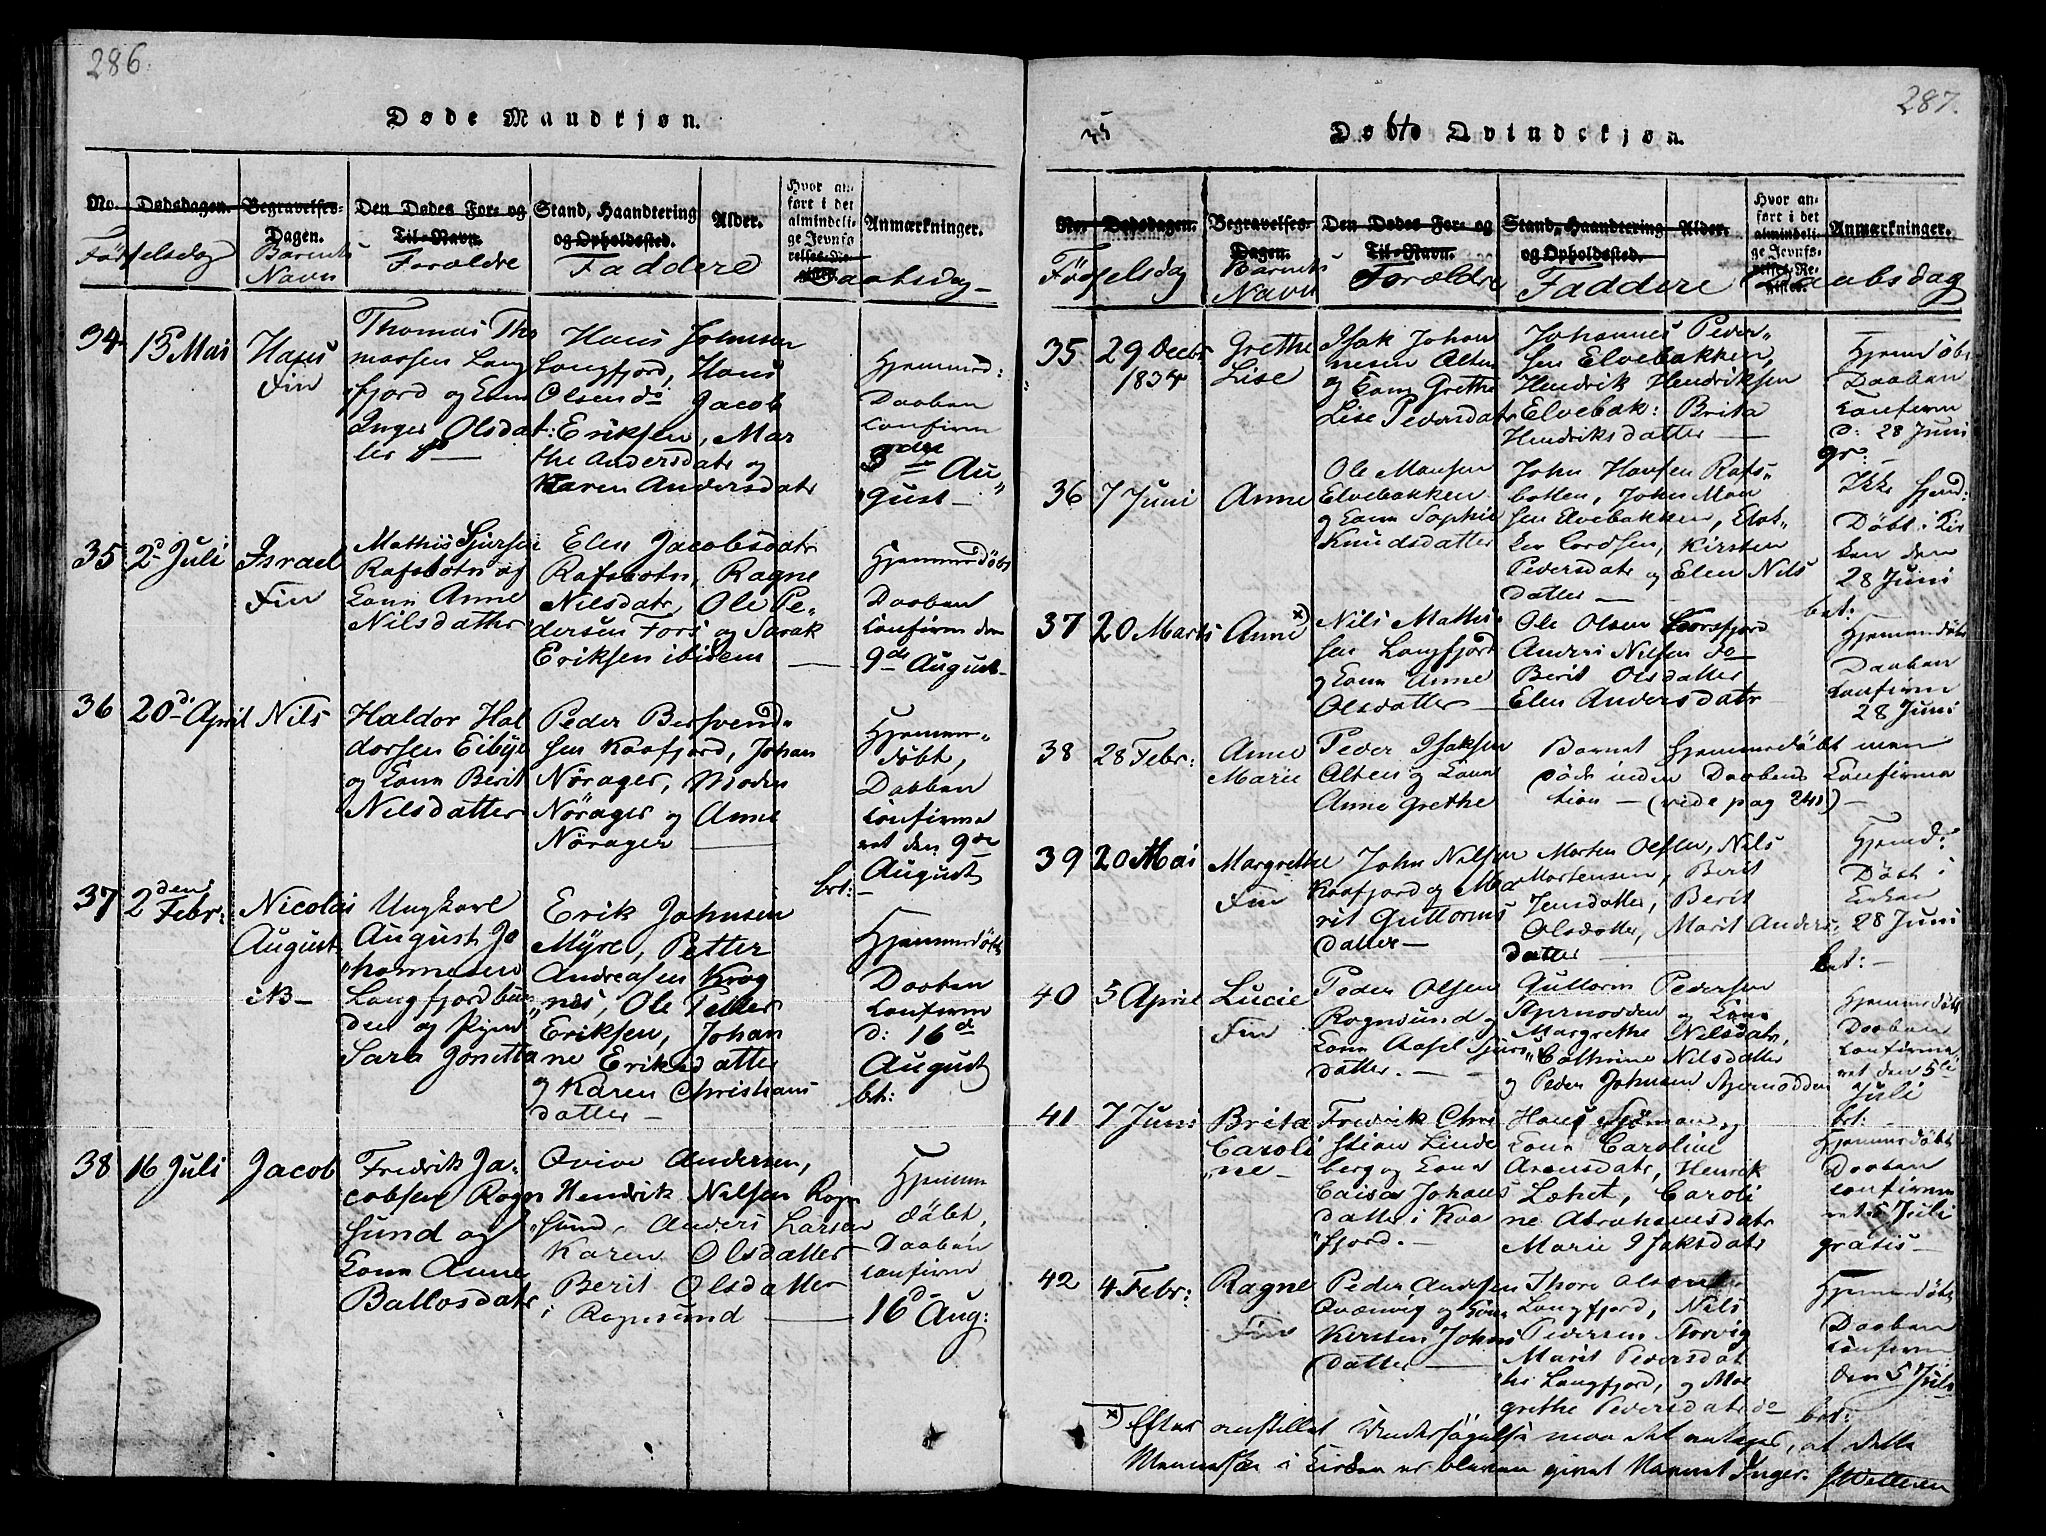 286.
Døde Mandkjøn.
No.
Dødsdagen.
Begravelses-
Dagen.
Den Dødes For- og
Til-Navn.
Stand, Haandtering
og Opholdssted.
Alder.
Hvor an-
ført i det
almindeli-
ge Jevnfø
relses-Re-
Anmærkninger.
Fødselsdag
Barnets
Navn
Forældre
Faddere
Daabsdag
34
13 Mai
Hans
Fin
Thomas Tho
massen Lang
fjord og Kone
Inger Olsdat
ter
Hans Johnsen
Langfjord, Hans
Olsen do Jacob
Eriksen, Mar
the Andersdatr og
Karen Andersdatr
Hjemmed:
Daaben
confirm
3die Au„
gust
35
2d Juli
Israel
Fin
Mathis Sjursen
Rafsbotn og
Kone Anne
Nilsdatter
Elen Jacobsdatr
Rafsbotn, Ragne
Nilsdatr, Ole Pe„
dersen Fors og Sarak
Eriksen ibidem
Hjemmedøbt
Daaben
confirm den
9de August
36
20de April
Nils
Haldor Hal
dorsen Eibye
og Kone Berit
Nilsdatter
Peder Bersvend„
sen Kaafjord, Johan
Nørager, Maden
Nørager og Anne
Nørager
Hjemme„
døbt,
Daaben
confirme
ret den 9de
August
37
2den Febr:
Nicolai
August
NB
Ungkarl
August Jo
hannesen
Langfjordbun„
den og Pigen
Sara Jonetta
Erik Johnsen
Myre, Petter
Andreasen Krog
næs, Ole Petter
Eriksen, Johan
ne Eriksdatter
og Karen Christians
datter
bet:
Hjemmedøbt
Daaben
confirm
d: 16d
August
bt:
38
16 Juli
Jacob
Fredrik Ja„
cobsen Rogn
sund og
Kone Anne
Ballosdatr
Qvive Andersen,
Hendrik Nilsen Rogn
sund, Anders Larsen
Karen Olsdatter
Berit Olsdatter
i Rognsund
Hjemme
døbt,
Daaben
confirm
16d Aug:
287.
Døbte Qvindekjøn.
No.
Dødsdagen.
Begravelses-
Dagen.
Den Dødes For- og
Til-Navn.
Stand, Haandtering
og Opholdssted.
Alder.
Hvor an-
ført i det
almindeli-
ge Jevnfø-
relses-Re-
gister.
Anmærkninger.
Fødselsdag
Barnets
Navn
Forældre
Faddere
Daabsdag
35
29 Decbr
1834
Grethe
Lise
Isak Johan
nesen Alten
og Kone Grethe
Lise Pedersdatr
Johannes Peder„
sen Elvebakken,
Hendrik Hendriksen
Elvebak: Brita
Hendriksdatter
Hjemdøbt
Daaben
confirm
d: 28 Juni
gr:
36
7 Juni
Anne
Ole Monsen
Elvebakken
og Kone Sophie
Knudsdatter
John Hansen Rafs„
botten, John Mon
sen Elvebakken,
Kirsten
Pedersdatr og Elen Nils
datter
Ikke hjemd:
Døbt i Kir
ken den
28 Juni
bet:
37
20 Marts
Anne x)
Nils Mathi
sen Langfjord
og Kone Anne
Olsdatter
Ole Olsen Korsfjord
Anders Nilsen do
Berit Olsdatter
Elen Andersdatr
Hjemmedøbt
Daaben
confirm
28 Juni
38
28 Febr:
Anne
Marie
Peder Isaksen
Alten og Kone
Anne Grethe
Barnet hjemmedøbt men
døde inden Daabens Confirma
tion — (vide pag 240)
39
20 Mai
Margrethe
Fin
John Nilsen
Kaafjord og Ma
rit Guttorms
datter
Morten Olsen, Nils
Mortensen, Berit
Jensdatter, Berit
Olsdatter, Marit Anders„
datter
Hjemd:
Døbt i
Kirken
28 Juni
bet:
40
5 April
Lucie
Fin
Peder Olsen
Rognsund og
Kone Aasel Sjurs
datter.
Guttorm Pedersen
Stjernodden og Kone
Margrethe Nilsdatr,
Cathrine Nilsdatter
og Peder Johnsen Stjernodden
Hjemmedøbt
Daaben
confirme„
ret den 5te
Juli
bt:
41
7 Juni
Brita
Caroli
„ne
Fredrik Chri
stian Linde
berg og Kone
Caisa Johans
datter i Kaa
fjord.
Hans Sjøman og
Kone Caroline
Arensdatr, Henrik
Læhet, Caroli
ne Abrahamsdatr
Marie Isaksdatr
Hjemmedøbt
Daaben
confirme
ret 5 Juli
gratis
42
4 Febr:
Ragne
Fin
Peder Andersen
Qvænvig og Kone
Kirsten Johns
datter
Thore Olsen
Langfjord, Nils
Pedersen Storvig
Marit Pedersdat
ter Langfjord, og Mar
grethe Pedersdatr do
Hjemmedøbt
Daaben
confirm
den 5 Juli
bet:
x) Efter anstillet Undersøgelse maa det antages, at dette
Menneske i Kirken er bleven givet Navnet Inger.